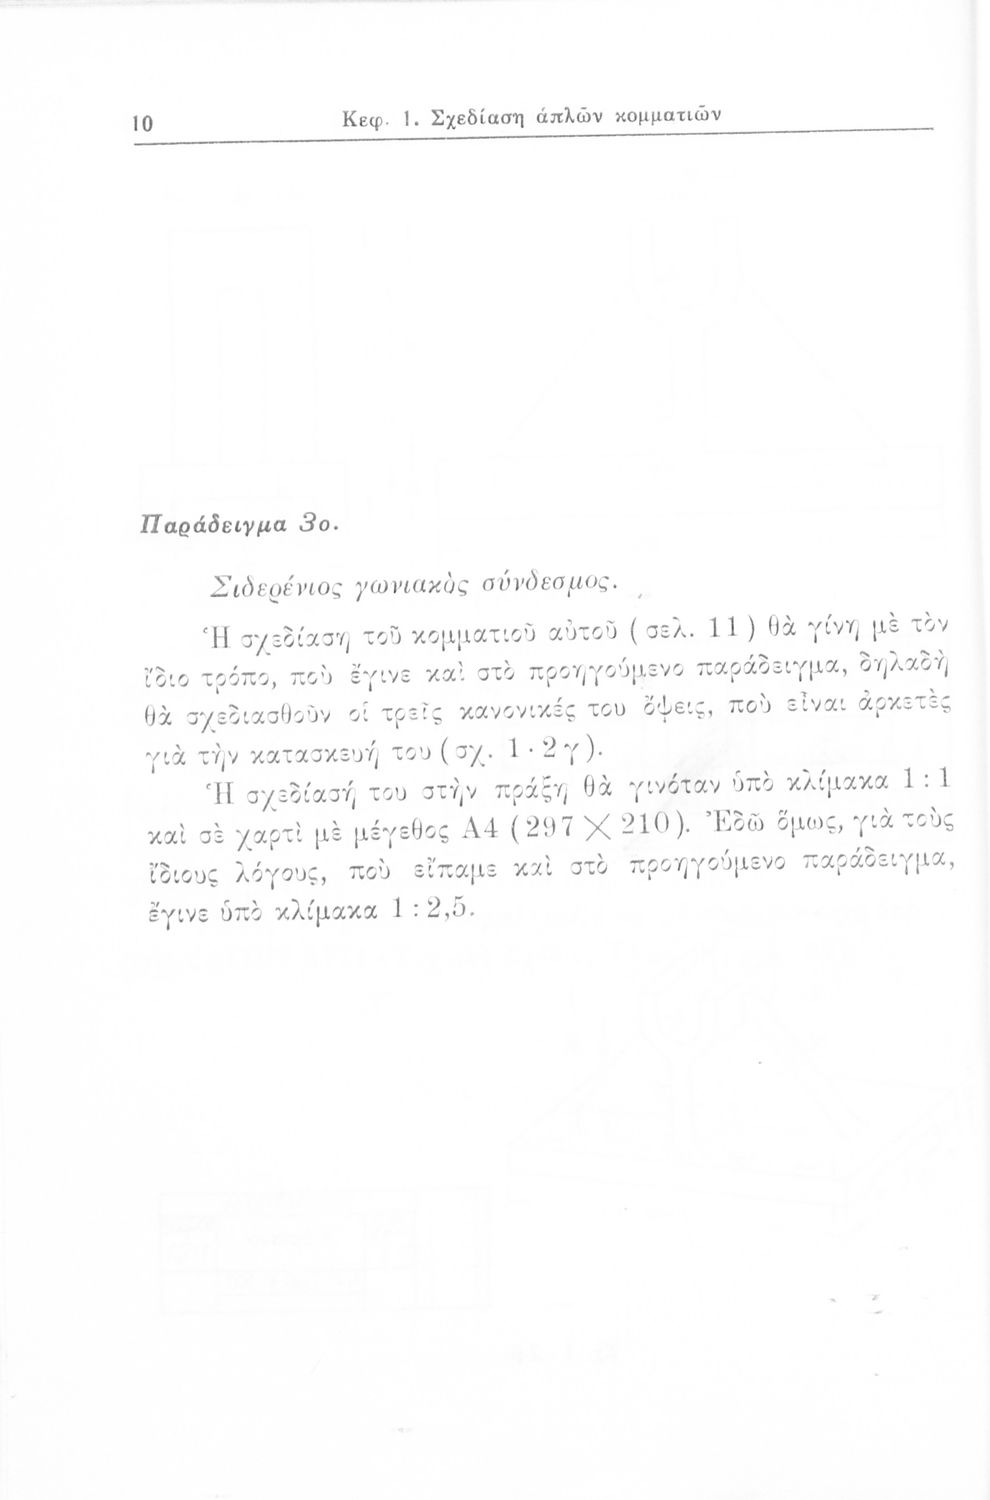 10
Κεφ. 1. Σχεδίαση ἁπλῶν κομματιῶν
Παράδειγμα 3ο.
Σιδερένιος γωνιακὸς σύνδεσμος.
Ἡ σχεδίαση τοῦ κομματιοῦ αὐτοῦ ( σελ. 11 ) θὰ γίνη μὲ τὸν
ἴδιο τρόπο, ποὺ ἔγινε καὶ στὸ προηγούμενο παράδειγμα, δηλαδὴ
θὰ σχεδιασθοῦν οἱ τρεῖς κανονικές του ὄψεις, ποὺ εἶναι ἀρκετὲς
γιὰ τὴν κατασκευή του ( σχ. 1 · 2 γ ).
Ἡ σχεδίασή του στὴν πράξη θὰ γινόταν ὑπὸ κλίμακα 1 : 1
καὶ σὲ χαρτὶ μὲ μέγεθος Α4 ( 297 × 210 ). Ἐδῶ ὅμως, γιὰ τοὺς
ἴδιους λόγους, ποὺ εἴπαμε καὶ στὸ προηγούμενο παράδειγμα,
ἔγινε ὑπὸ κλίμακα 1 : 2,5.